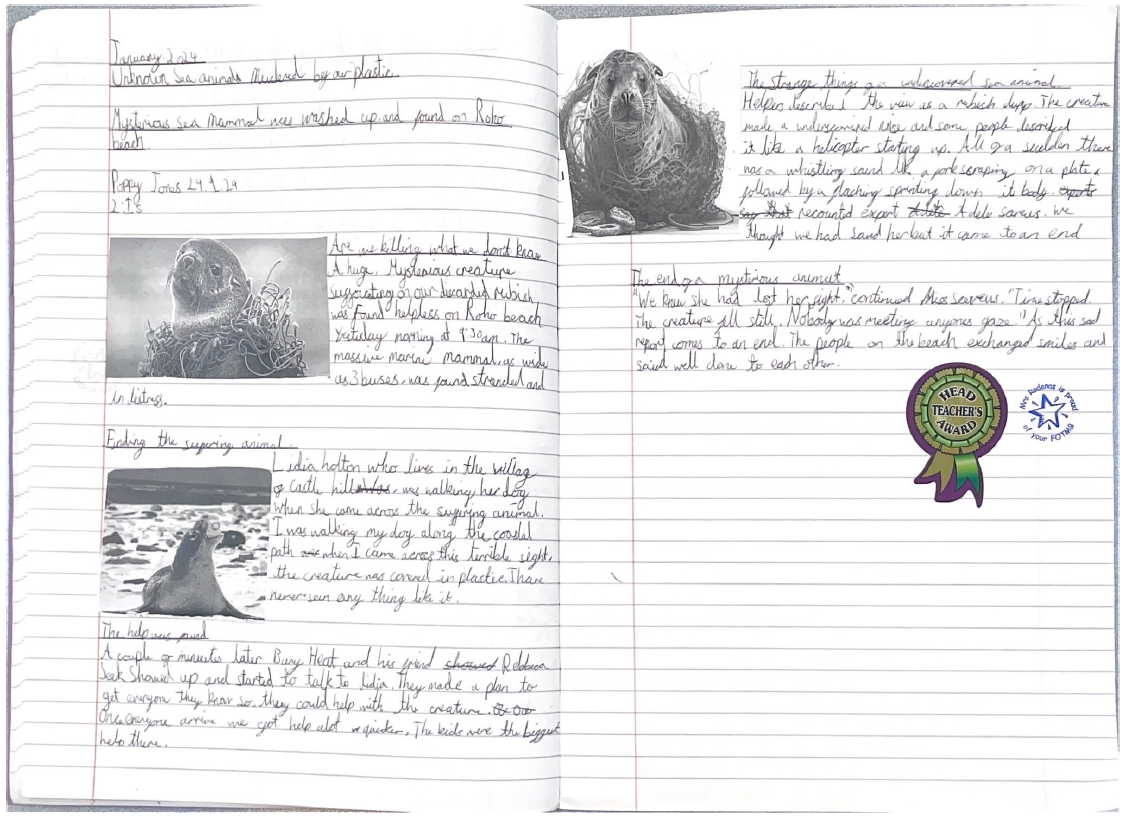 January 2024
Unknown Sea animals Murdered by our plastic.
Mysterious sea mammal was washed up and found on Roho
beach
Poppy Jones 24.1.24
Are we killing what we don't know
A huge. Mysterious creature
suffocating on our decarded rubish,
was found helpless on Roho beach
Yestaday morning at 9:30am. The
massive marine mammal, as wide
as 3 buses, was found stranded and
in distress.
Finding the suffering animal.
Lidia holton who lives in the village
of Castle hill, was walking her dog
when she came across the suffering animal.
I was walking my dog along the coastal
path when I came across this terrible sight,
the creature was coverd in plastic. I have
never seen any thing like it!
The help was found
A couple of minuetes later Heat and his friend showed Rebbeca
Seek Showed up and started to talk to Lidia. They made a plan to
get everyone they know so they could help with the creature.
Once everyone arrive we got help alot quicker. The kids were the biggest
help there.
The strange things of a undiscovered sea animal
Helpers described the view as a rubish dump. The creature
made a underscovered noise and some people described
it like a helicopter starting up. All of a sudden there
was a whistling sound like a fork scraping on a plate
followed by a down it body.
say that recounted expert Adele sareus. We
thought we had saved her but it came to an end
The end of a mystirious animal
"We knew she had lost her fight," continued Miss sareus. "Time stopped.
The creature fell still. Nobody was meeting anyones gaze." As this sad
report comes to an end. The people on the beach exchanged smiles and
said well done to each other.
HEAD
TEACHER'S
AWARD
Mrs Rodenas is proud
of your FOTMS